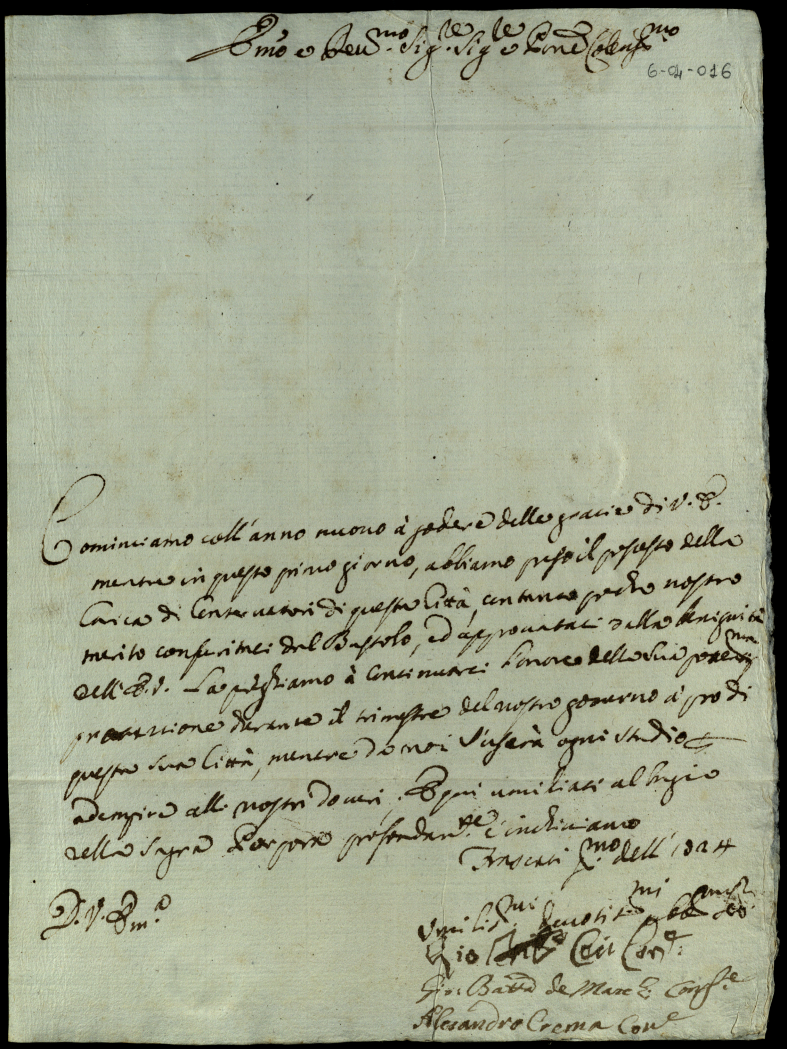 Emo e Reu.mo Sig.re Sig.re e Prone Colen.mo
6-04-016
Cominciamo coll'anno nuouo à godere delle gracie di V. E.
mentre in questo primo giorno, abbiamo preso il possesso della
Carica di Conseruatori di questa Città, con tanto poche nostro
merito conferitaci dal Bussolo, ed approuataci dalla benignità
dell'E.V. La preghiamo à continuarci l'onore della sua
protezzione durante il trimestre del nostro gouerno à prò di
questa sua Città, mentre da noi s'userà ogni studio
adempire alli nostri doueri. E qui umiliati al bagio
della Sagra Porpora profondam.te c'inchiniamo
Frascati P.mo dell'
D. V. Em.a
Vmilis.mi Deuotis.mi
Pio Ceci Con.e
Gio: Batta de Marc Cons.re
Alesandro Crema Con.e